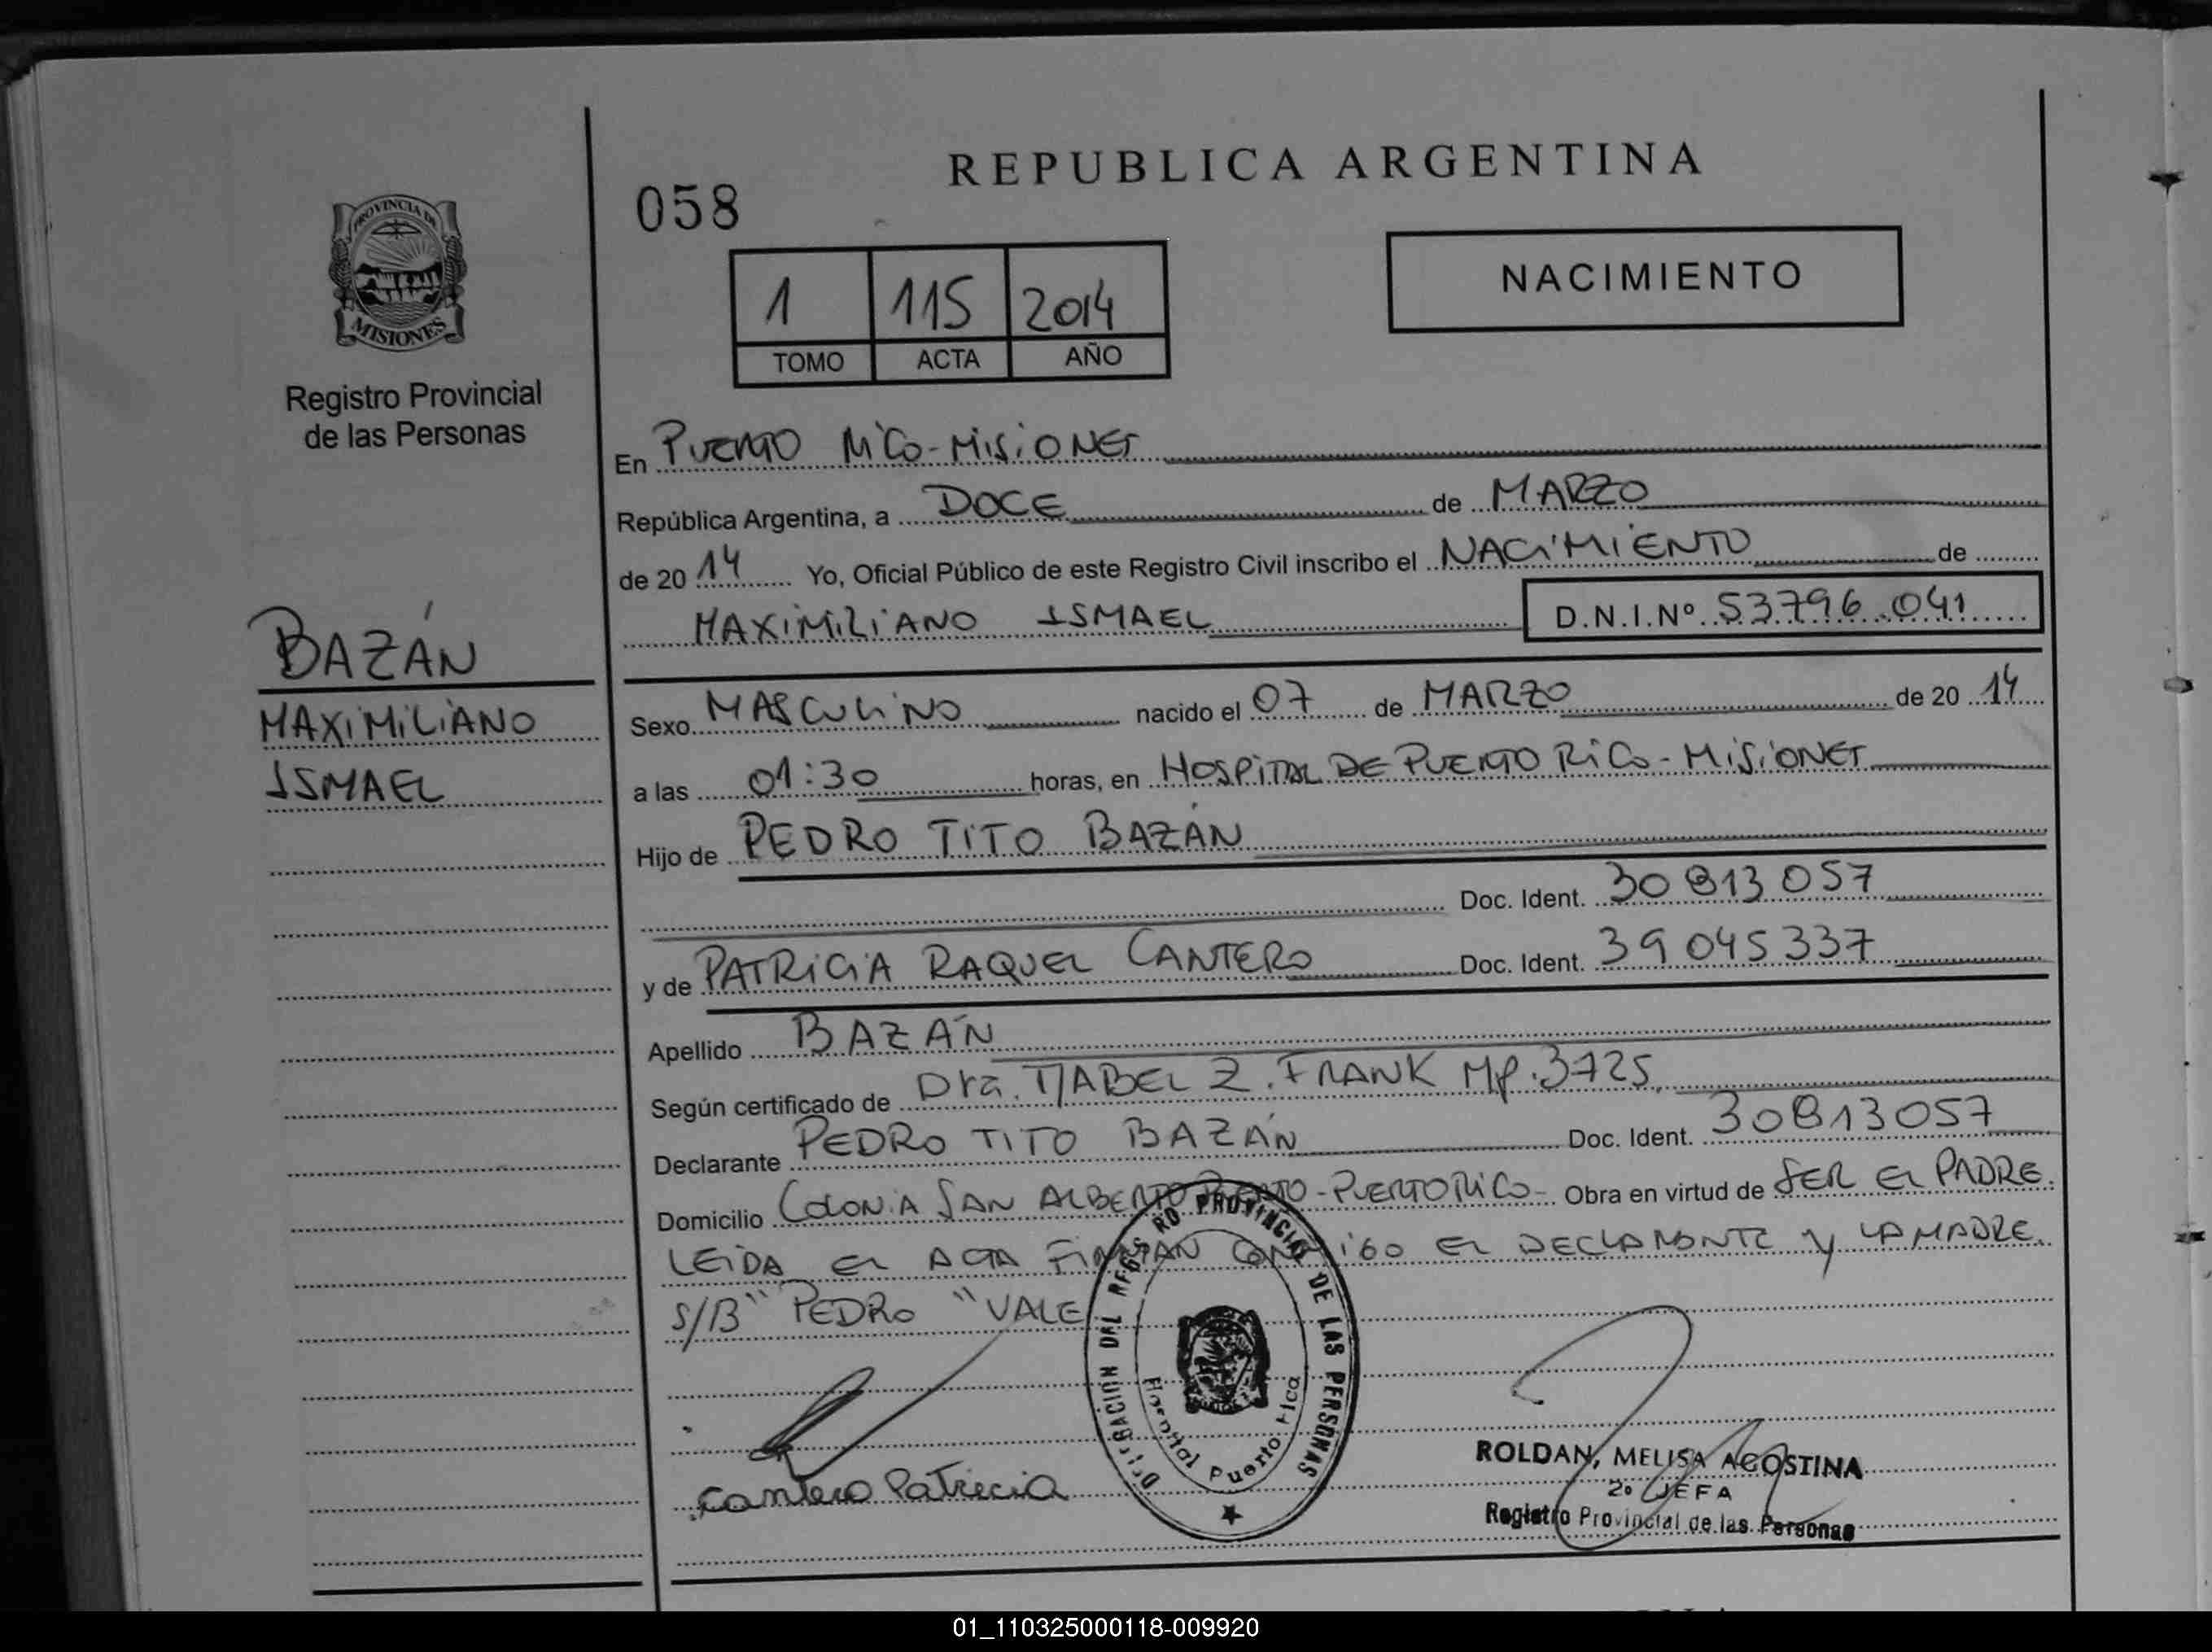 REPUBLICA ARGENTINA
058
PROVINCIA DE
MISIONES
Registro Provincial
de las Personas
NACIMIENTO
1 115 2014
TOMO ACTA AÑO
En PUERTO RICO-MISIONES
República Argentina, a DOCE de MARZO
de 20 14 Yo, Oficial Público de este Registro Civil inscribo el NACIMIENTO de
MAXIMILIANO ISMAEL D.N.I.Nº 53796.041
BAZÁN
MAXIMILIANO
ISMAEL
Sexo MASCULINO nacido el 07 de MARZO de 20 14
a las 01:30 horas, en HOSPITAL DE PUERTO RICO-MISIONES
Hijo de PEDRO TITO BAZÁN
Doc. Ident. 30 813 057
y de PATRICIA RAQUEL CANTERO Doc. Ident. 39 045 337
Apellido BAZÁN
Según certificado de Dra. Z. FRANK MP.3725
Declarante PEDRO TITO BAZÁN Doc. Ident. 30813057
Domicilio COLONIA SAN ALBERTO -PUERTO RICO- Obra en virtud de SER EL PADRE.
LEIDA EL ACTA FIRMAN CONMIGO EL DECLARANTE Y LA MADRE.
S/B "PEDRO "VALE
DELEGACIÓN DEL REGISTRO PROVINCIAL DE LAS PERSONAS
Hospital Puerto Rico
Cantero Patricia
ROLDAN, MELISA AGOSTINA
2º JEFA
Registro Provincial de las Personas
01_110325000118-009920